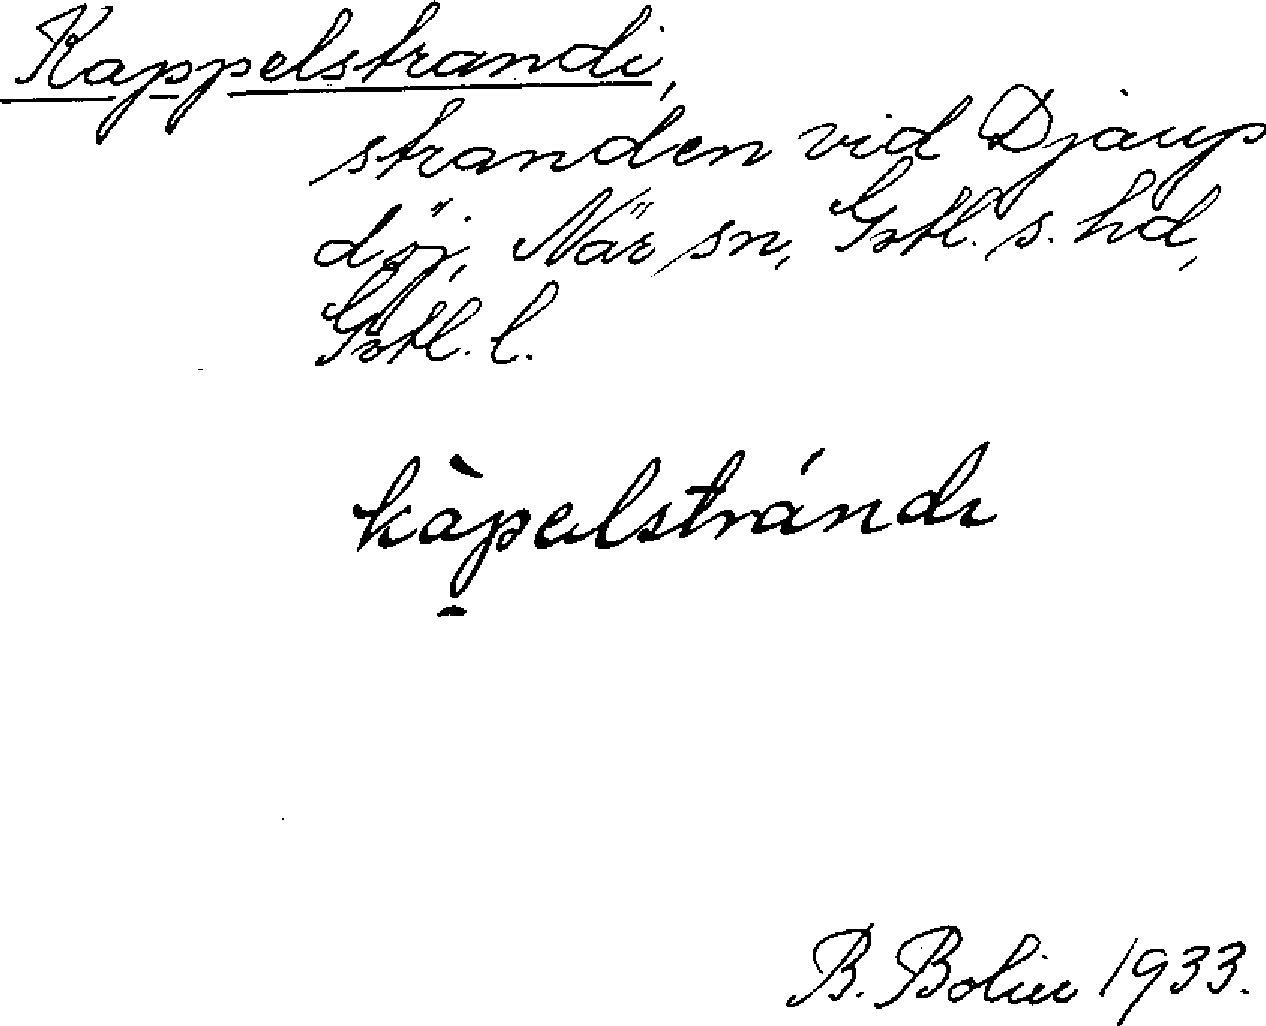 Kappelstrandi,
stranden vid Djaup
döj, När sn, Gotl. s. hd,
Gotl. l.
kàpelstrándı
B. Bolin 1933.